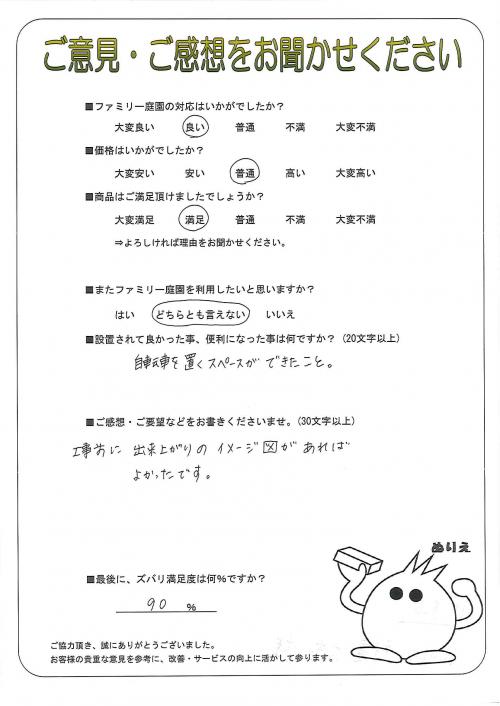 ご意見・ご感想をお聞かせください
■ファミリー庭園の対応はいかがでしたか？
大変良い 良い 普通 不満 大変不満
■価格はいかがでしたか？
大変安い 安い 普通 高い 大変高い
■商品はご満足頂けましたでしょうか？
大変満足 満足 普通 不満 大変不満
⇒よろしければ理由をお聞かせください。
■またファミリー庭園を利用したいと思いますか？
はい どちらとも言えない いいえ
■設置されて良かった事、便利になった事は何ですか？（20文字以上）
自転車を置くスペースができたこと。
■ご感想・ご要望などをお書きくださいませ。（30文字以上）
工事前に出来上がりのイメージ図があれば
よかったです。
ぬりえ
■最後に、ズバリ満足度は何％ですか？
90 ％
ご協力頂き、誠にありがとうございました。
お客様の貴重な意見を参考に、改善・サービスの向上に活かして参ります。